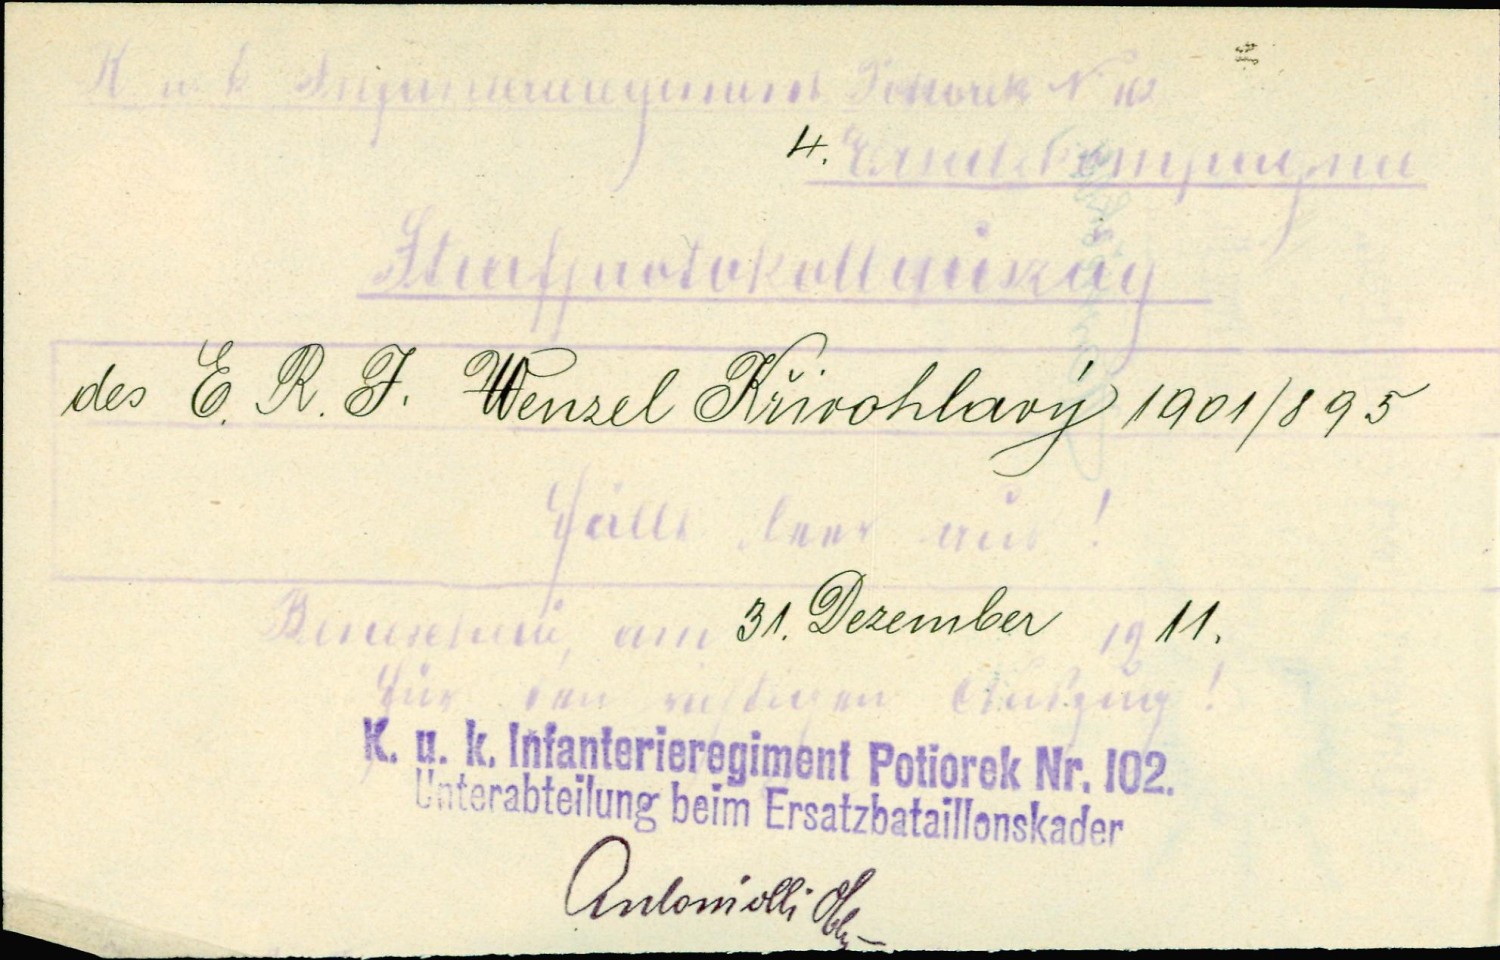 K. u. k. Infanterieregiment Potiorek Nr 102
4. Ersatzkompagnie
Strafprotokollauszug
des E. R. J. Wenzel Křivohlavý 1901/895
Fällt leer aus!
Beneschau, am 31. Dezember 1911.
Für den richtigen Auszug!
K. u. k. Infanterieregiment Potiorek Nr. 102.
Unterabteilung beim Ersatzbataillonskader
Antoniolli